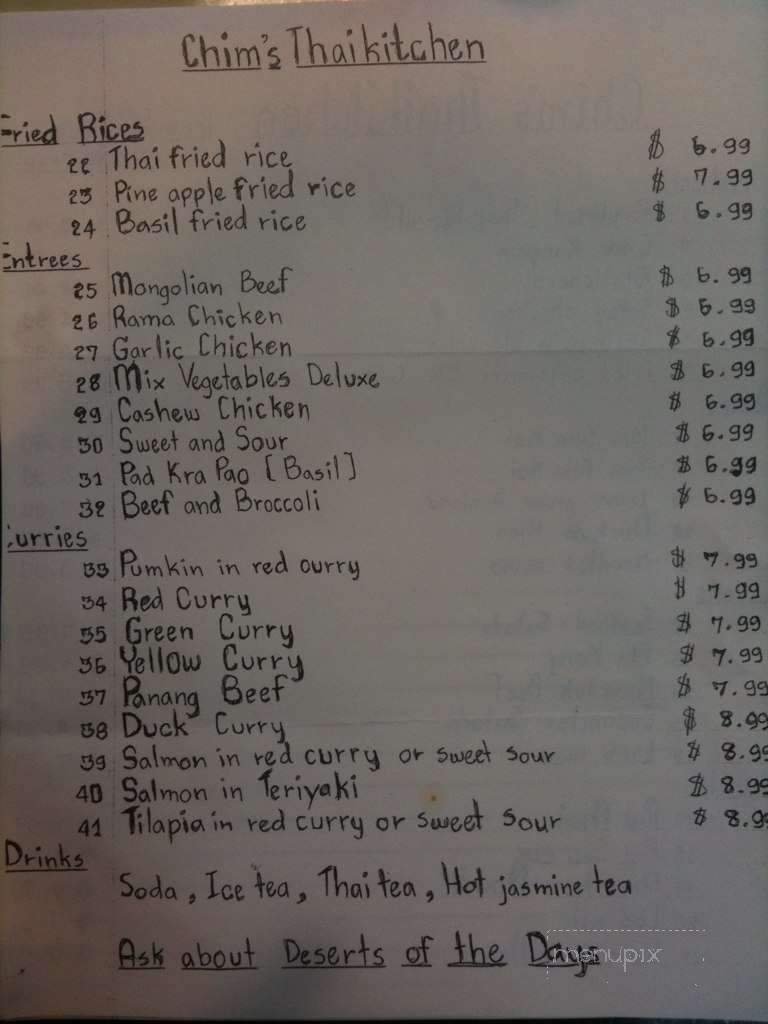 Chim's Thaikitchen
Fried Rices
22 Thai fried rice $ 6.99
23 Pine apple fried rice $ 7.99
24 Basil fried rice $ 6.99
Entrees
25 Mongolian Beef $ 6.99
26 Rama Chicken $ 6.99
27 Garlic Chicken $ 6.99
28 Mix Vegetables Deluxe $ 6.99
29 Cashew Chicken $ 6.99
30 Sweet and Sour $ 6.99
31 Pad Kra Pao [Basil] $ 6.99
32 Beef and Broccoli $ 6.99
Curries
33 Pumkin in red curry $ 7.99
34 Red Curry $ 7.99
35 Green Curry $ 7.99
36 Yellow Curry $ 7.99
37 Panang Beef $ 7.99
38 Duck Curry $ 8.99
39 Salmon in red curry or sweet sour $ 8.99
40 Salmon in Teriyaki $ 8.99
41 Tilapia in red curry or sweet sour $ 8.99
Drinks
Soda, Ice tea, Thai tea, Hot jasmine tea
Ask about Deserts of the Days
menupix